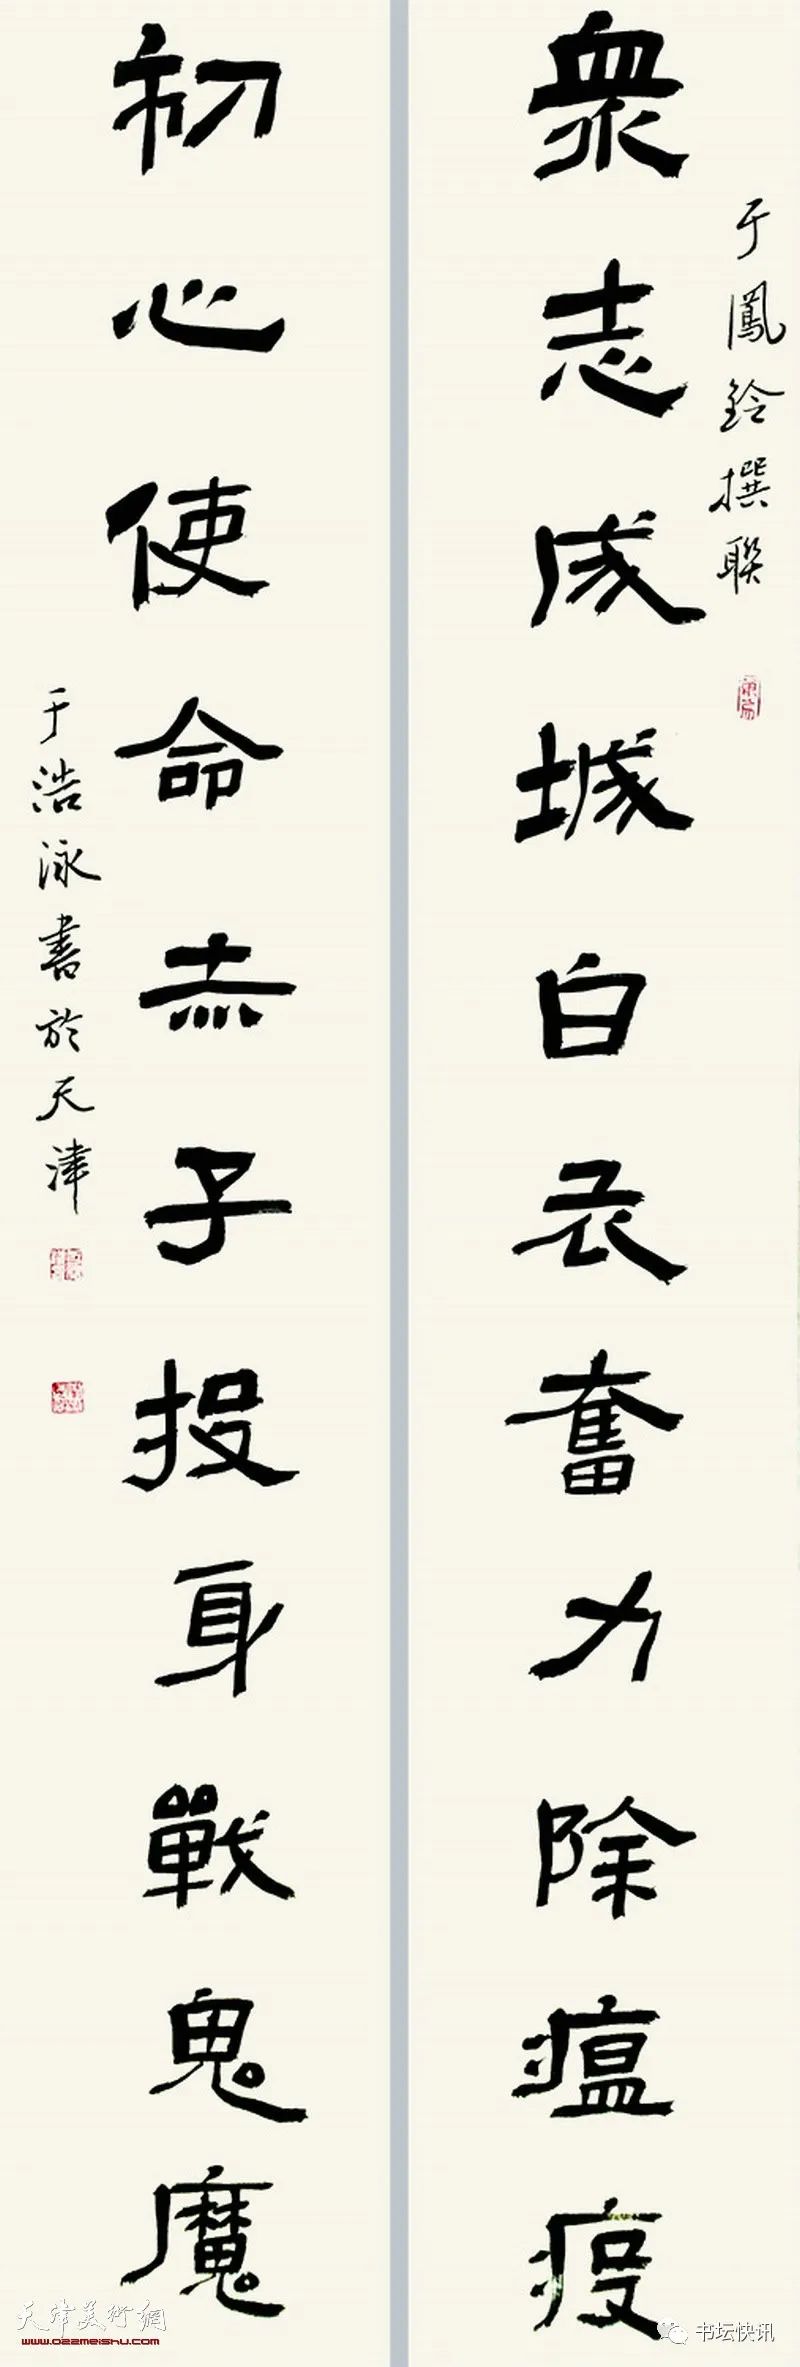 于鳳鈴撰聯
衆志成城白衣奮力除瘟疫
初心使命赤子投身戰鬼魔
于浩泳書於天津
天津美術網
www.022meishu.com
书坛快讯